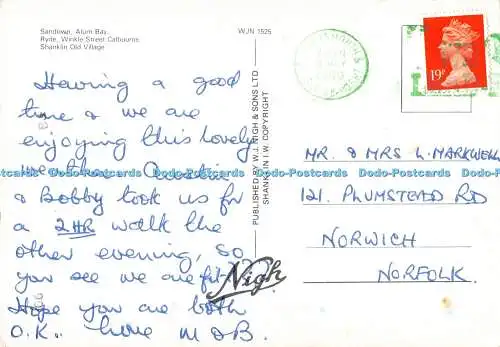 Sandown, Alum Bay,
Ryde, Winkle Street Calbourne,
Shanklin Old Village
WJN 1525
19P
Having a good
time & we are
enjoying this lovely
weather
& Bobby took us for
a 2HR walk the
other evening, so
you see we are fit!!
Hope you are both
O.K. love M & B.
PUBLISHED BY W.J. NIGH & SONS LTD
SHANKLIN I.W. COPYRIGHT
Nigh
MR. & MRS W. MARKWELL
121, PLUMSTEAD RD
NORWICH
NORFOLK.
Dodo-Postcards Dodo-Postcards Dodo-Postcards Dodo-Postcards Dodo-Postcards